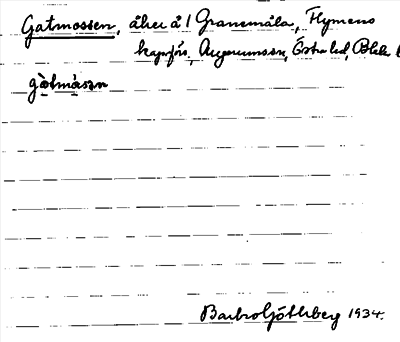 Gatmossen, åker å 1 Granemåla, Flymens
kapellförs, Augerumssn, Östra hd, Blek. l
gàtmåsan
Barbro Göthberg 1934.